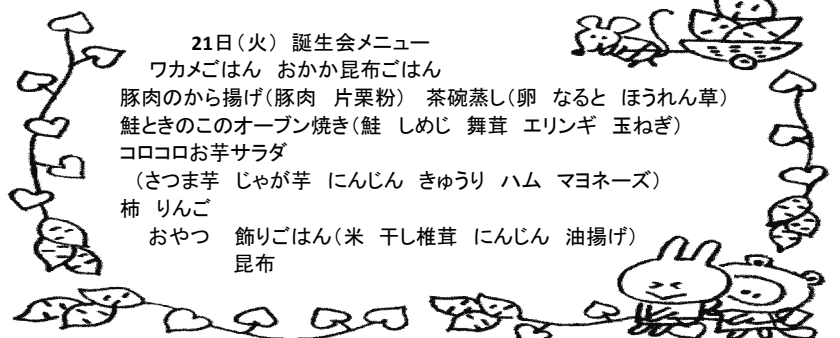 21日(火) 誕生会メニュー
ワカメごはん おかか昆布ごはん
豚肉のから揚げ(豚肉 片栗粉) 茶碗蒸し(卵 なると ほうれん草)
鮭ときのこのオーブン焼き(鮭 しめじ 舞茸 エリンギ 玉ねぎ)
コロコロお芋サラダ
(さつま芋 じゃが芋 にんじん きゅうり ハム マヨネーズ)
柿 りんご
おやつ 飾りごはん(米 干し椎茸 にんじん 油揚げ)
昆布